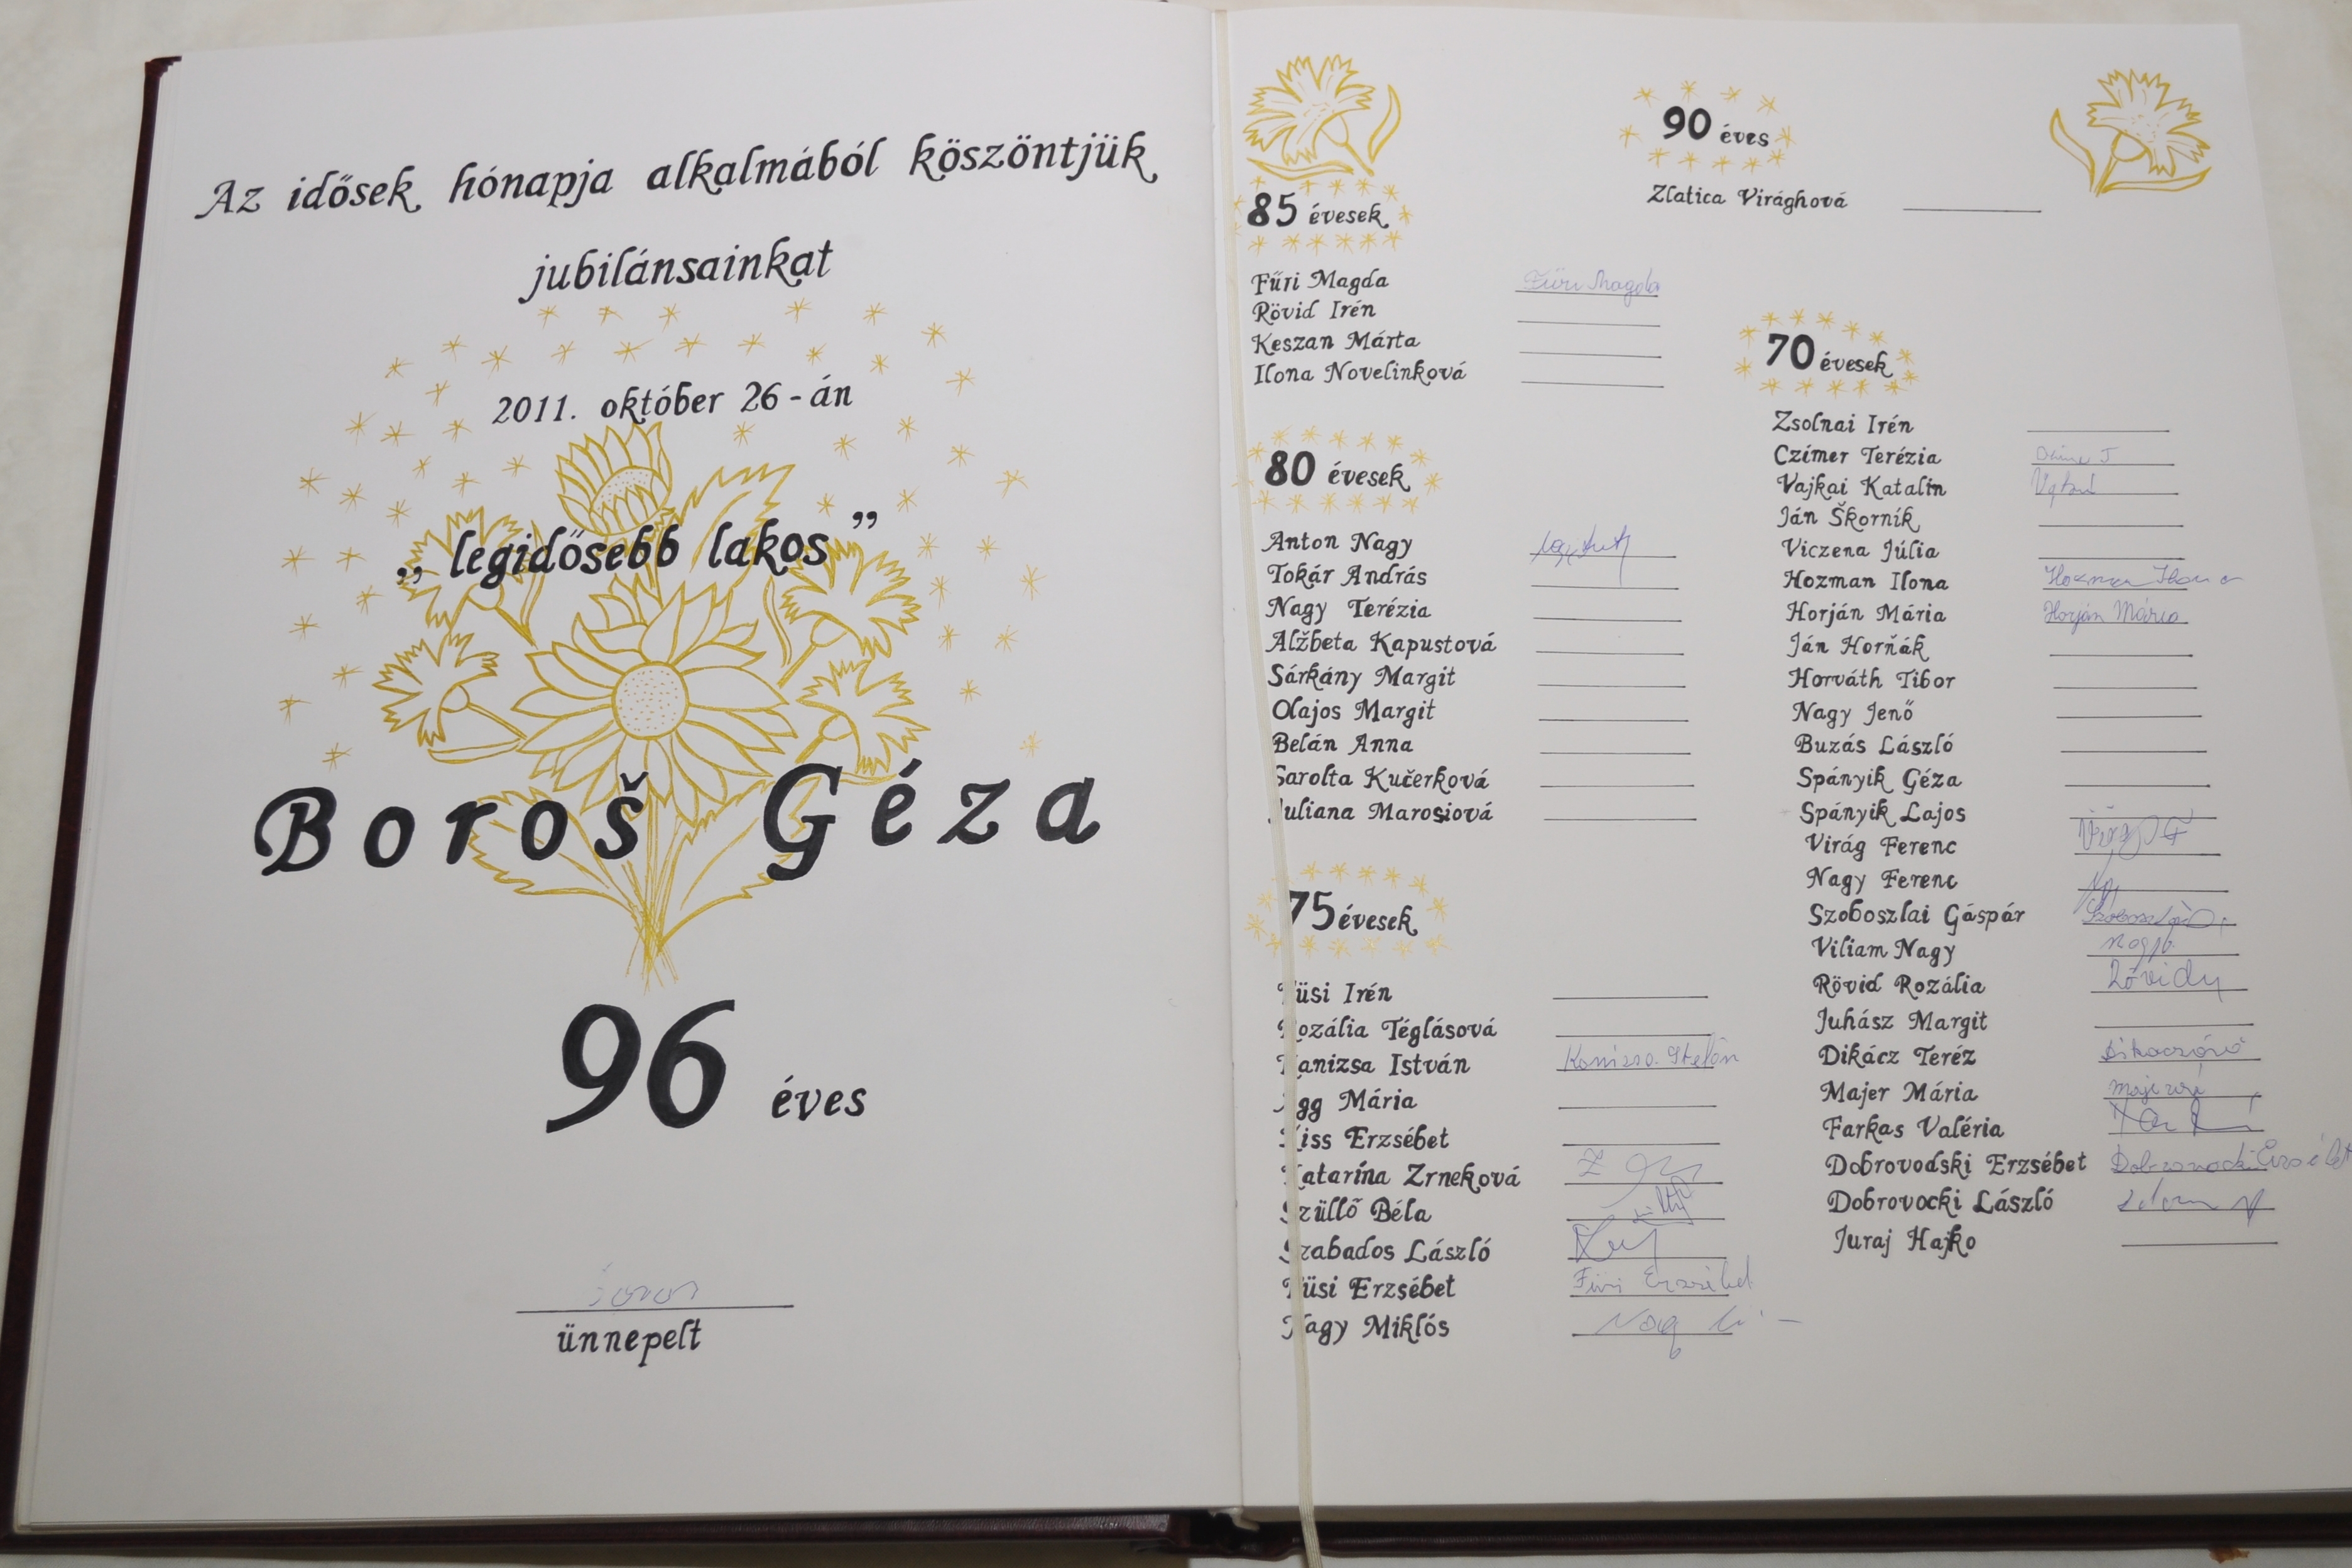 Az idősek hónapja alkalmából köszöntjük
jubilánsainkat
2011. október 26-án
„legidősebb lakos”
Boroš Géza
96 éves
ünnepelt
90 éves
Zlatica Virághová
85 évesek
Fűri Magda Fűri Magda
Rövid Irén
Keszan Márta
Ilona Novelinková
80 évesek
Anton Nagy
Tokár András
Nagy Terézia
Alžbeta Kapustová
Sárkány Margit
Olajos Margit
Belán Anna
Sarolta Kučerková
uliana Marosiová
75 évesek
üsi Irén
ozália Téglásová
anizsa István
gg Mária
iss Erzsébet
atarína Zrneková
züllő Béla
zabados László
üsi Erzsébet
agy Miklós
70 évesek
Zsolnai Irén
Czímer Terézia
Vajkai Katalin
Ján Škorník
Viczena Júlia
Hozman Ilona Hozman Ilona
Horján Mária Horján Mária
Ján Horňák
Horváth Tibor
Nagy Jenő
Buzás László
Spányik Géza
Spányik Lajos
Virág Ferenc
Nagy Ferenc
Szoboszlai Gáspár
Viliam Nagy
Rövid Rozália
Juhász Margit
Dikácz Teréz
Majer Mária
Farkas Valéria
Dobrovodski Erzsébet
Dobrovocki László
Juraj Hajko